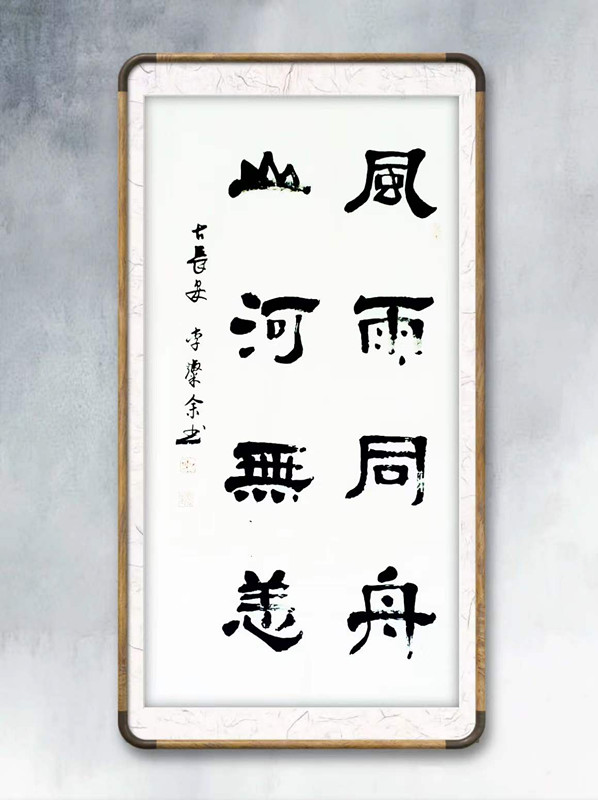 風雨同舟
山河無恙
古長安 李燦余书